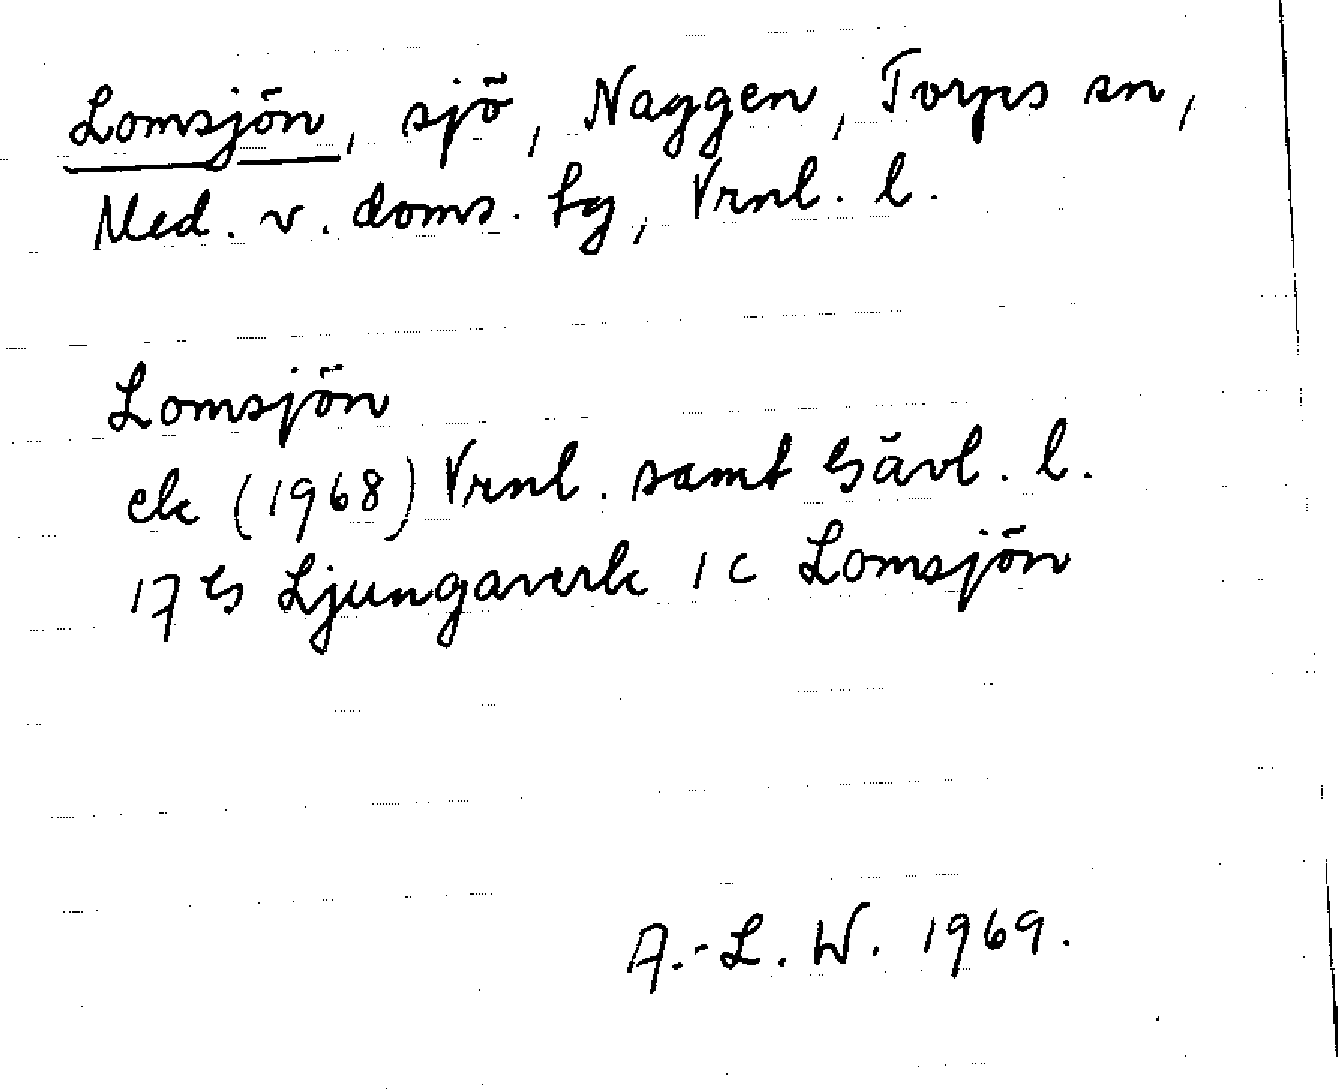 Lomsjön, sjö, Naggen, Torps sn,
Med. v. doms. fg, Vrnl. l.
Lomsjön
ek (1968) Vrnl. samt Gävl. l.
17 G Ljungaverk 1 c Lomsjön
A.-L. W. 1969.